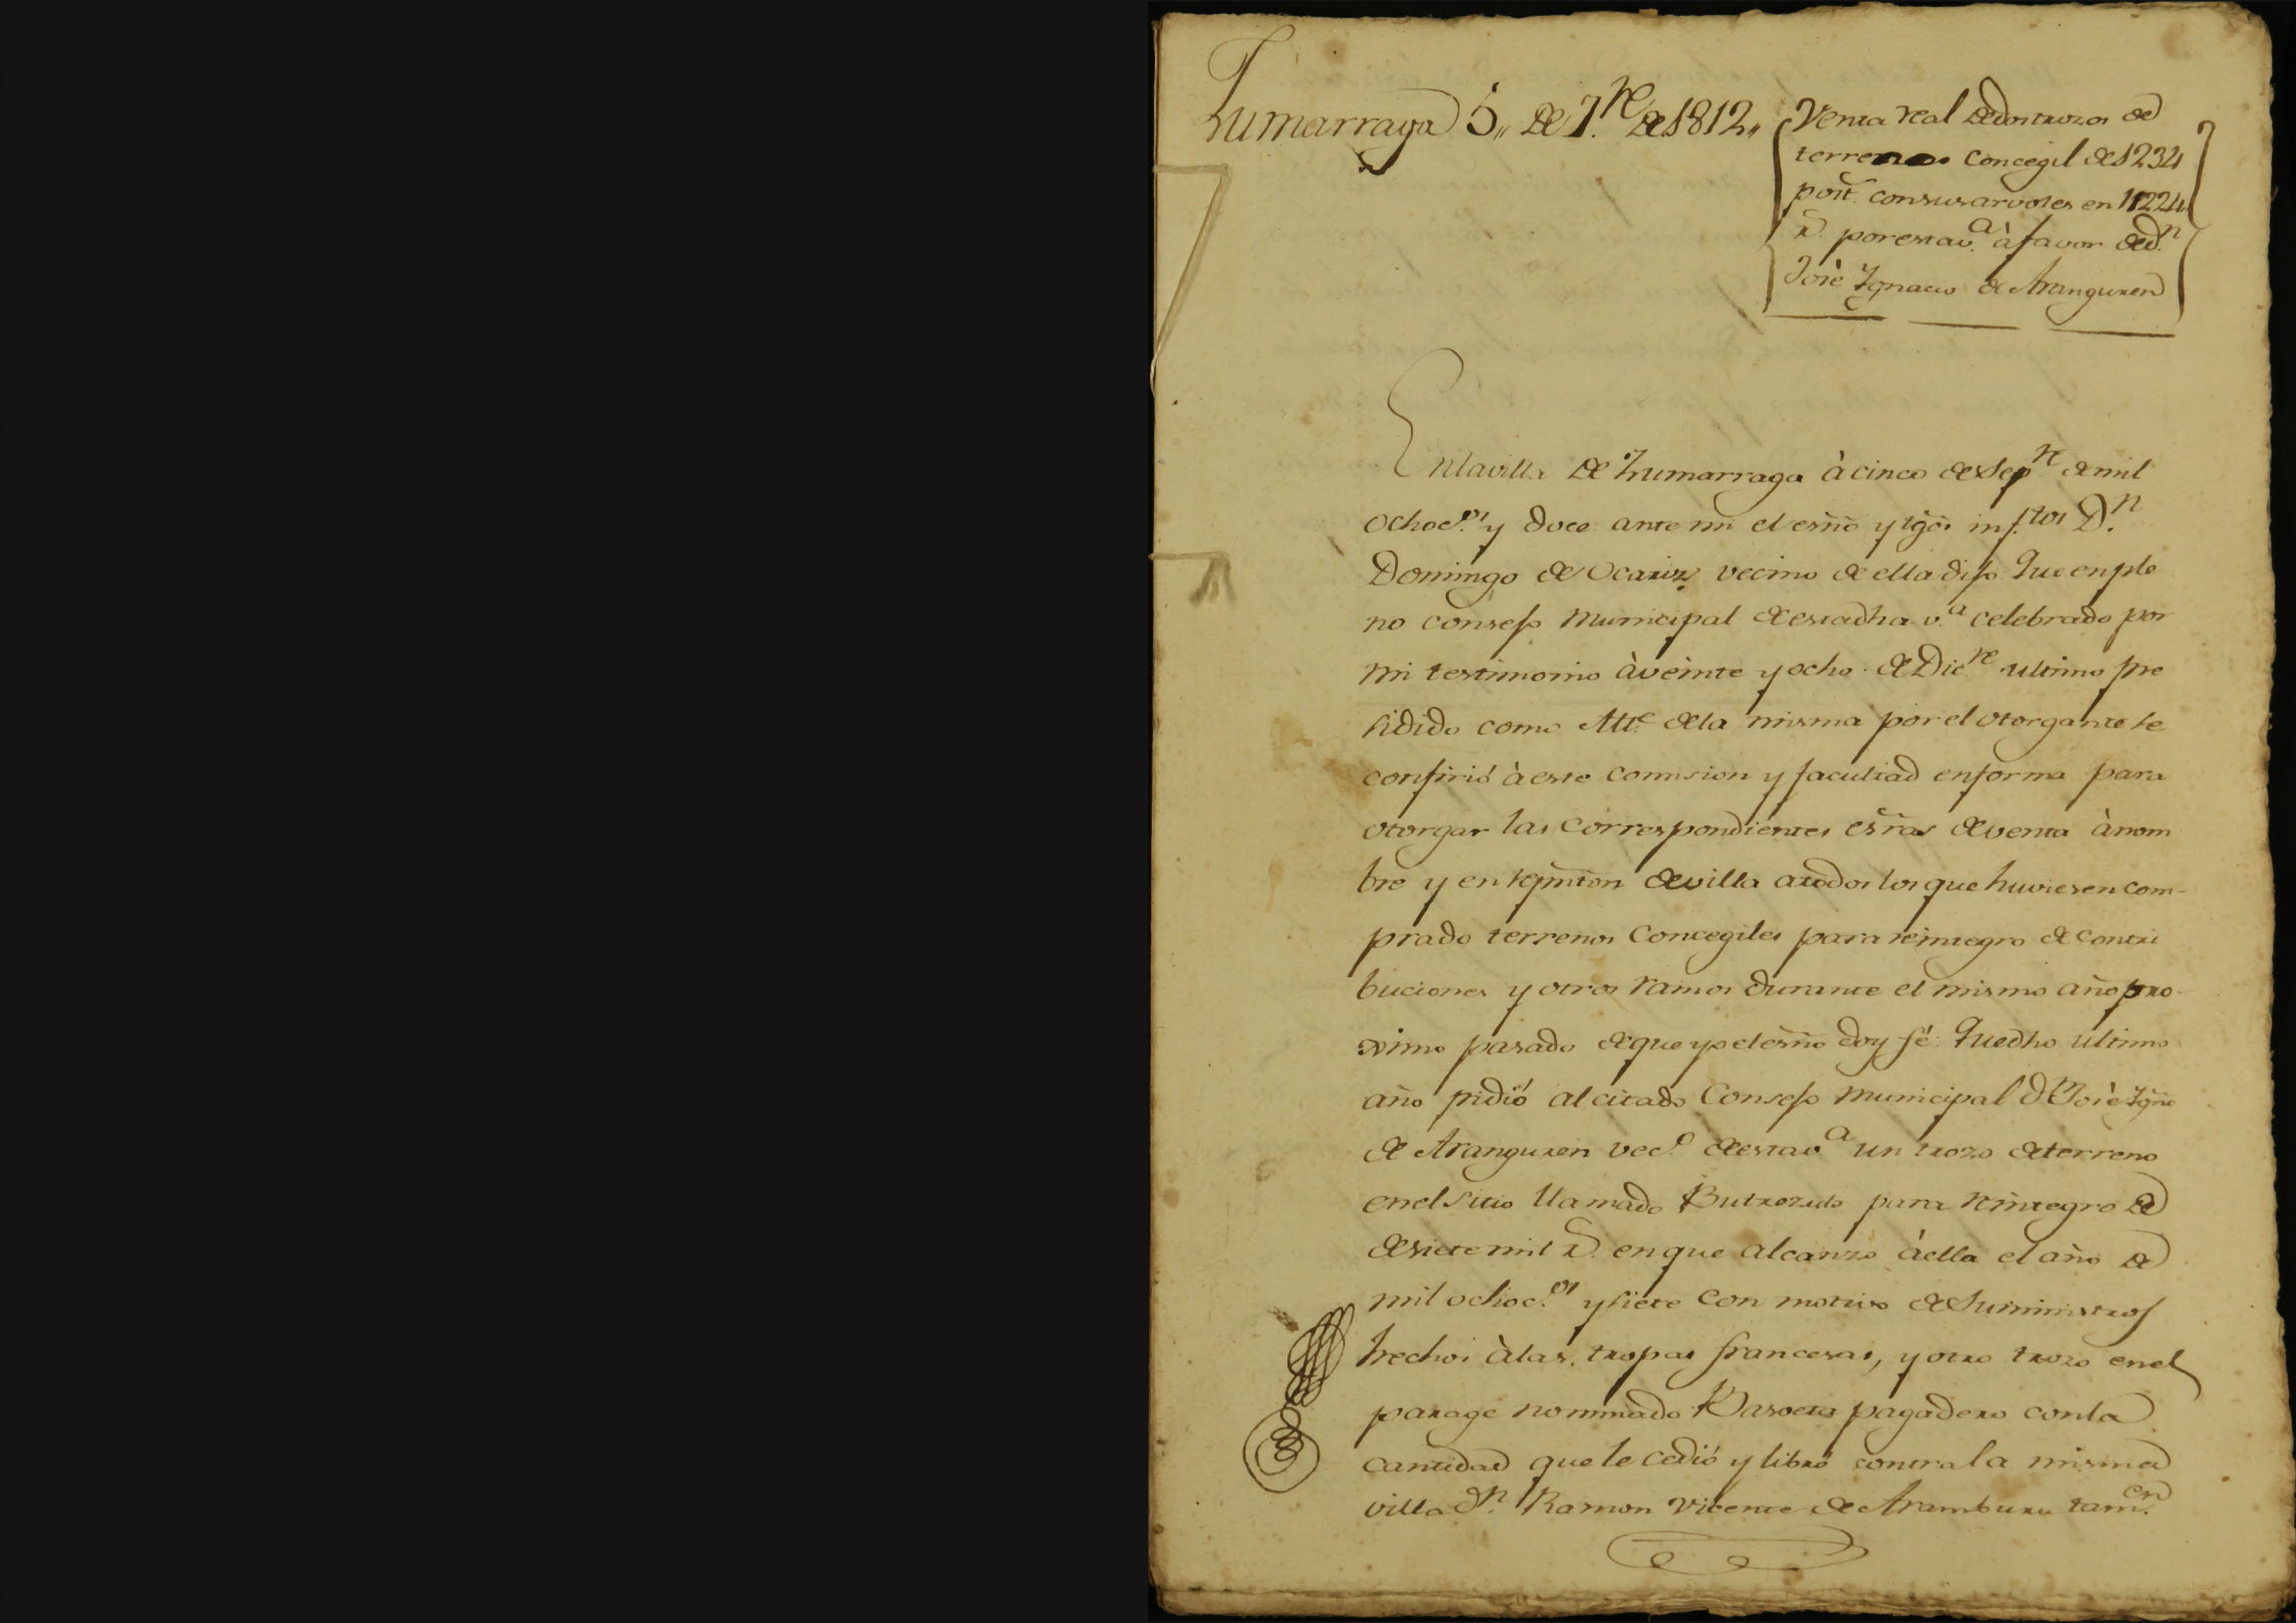 Zumarraga 5,, de 7.re de 1812,,
Venta real de dos trozos de
terrenos concegil de 1234
post. con sus arvoles en 11224
r.s por esta v.a à favor de d.n
Josè Ygnacio de Aranguren
En la villa de Zumarraga à cinco de Sep.re de mil
ochoc.os y doce ante mi el esno y tgos infros D.n
Domingo de Ocariz vecino de ella dijo: Que en ple
no consejo municipal de esta dha v.a celebrado por
mi testimonio à veinte y ocho de Dic.re ultimo pre
sidido como Alle. de la misma por el otorgante se
confirió à este comision y facultad en forma para
otorgar las correspondientes esras de venta à nom
bre y en repnton de villa a todos los que huviesen com-
prado terrenos concegiles para reintegro de contri
buciones y otros ramos durante el mismo año pro-
ximo pasado de que yo el esno doy fé: Que dho ultimo
año pidió al citado Consejo municipal d.n Josè Ygno
de Aranguren vec.o de esta v.a un trozo de terreno
en el sitio llamado para reintegro de
de siete mil r.s en que alcanzo à ella el año de
mil ochoc.os y siete con motivo de suministros
hechos à las tropas francesas, y otro trozo en el
parage nominado Basoeta pagadero con la
cantidad que le cedió y libró contra la misma
villa d.n Ramon Vicente de Aramburu tam.en